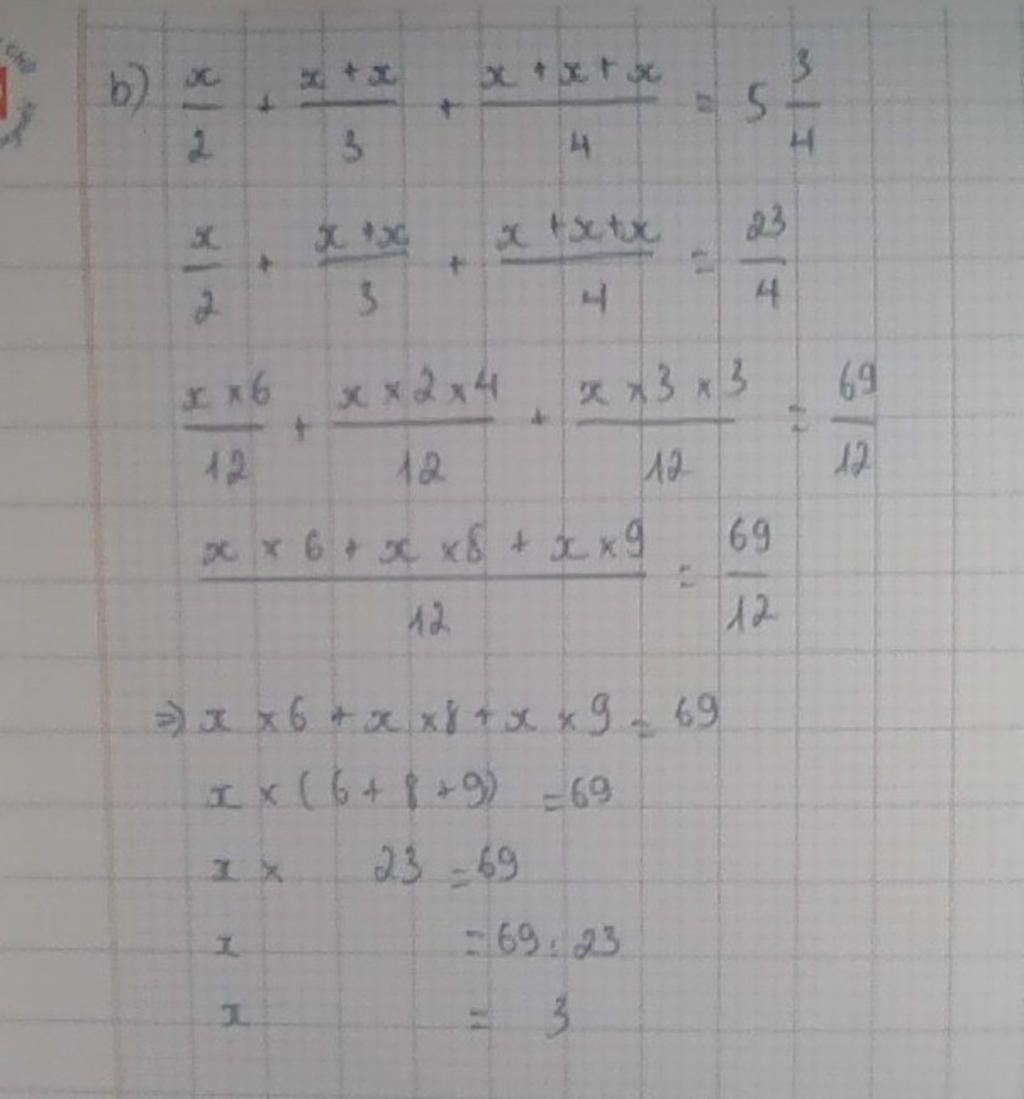 b) x/2 + x + x/3 + x + x + x/4 = 5 3/4
x/2 + x + x/3 + x + x + x/4 = 23/4
x × 6/12 + x × 2 × 4/12 + x × 3 × 3/12 = 69/12
x × 6 + x × 8 + x × 9/12 = 69/12
=> x × 6 + x × 8 + x × 9 = 69
x × (6 + 8 + 9) = 69
x × 23 = 69
x = 69 : 23
x = 3